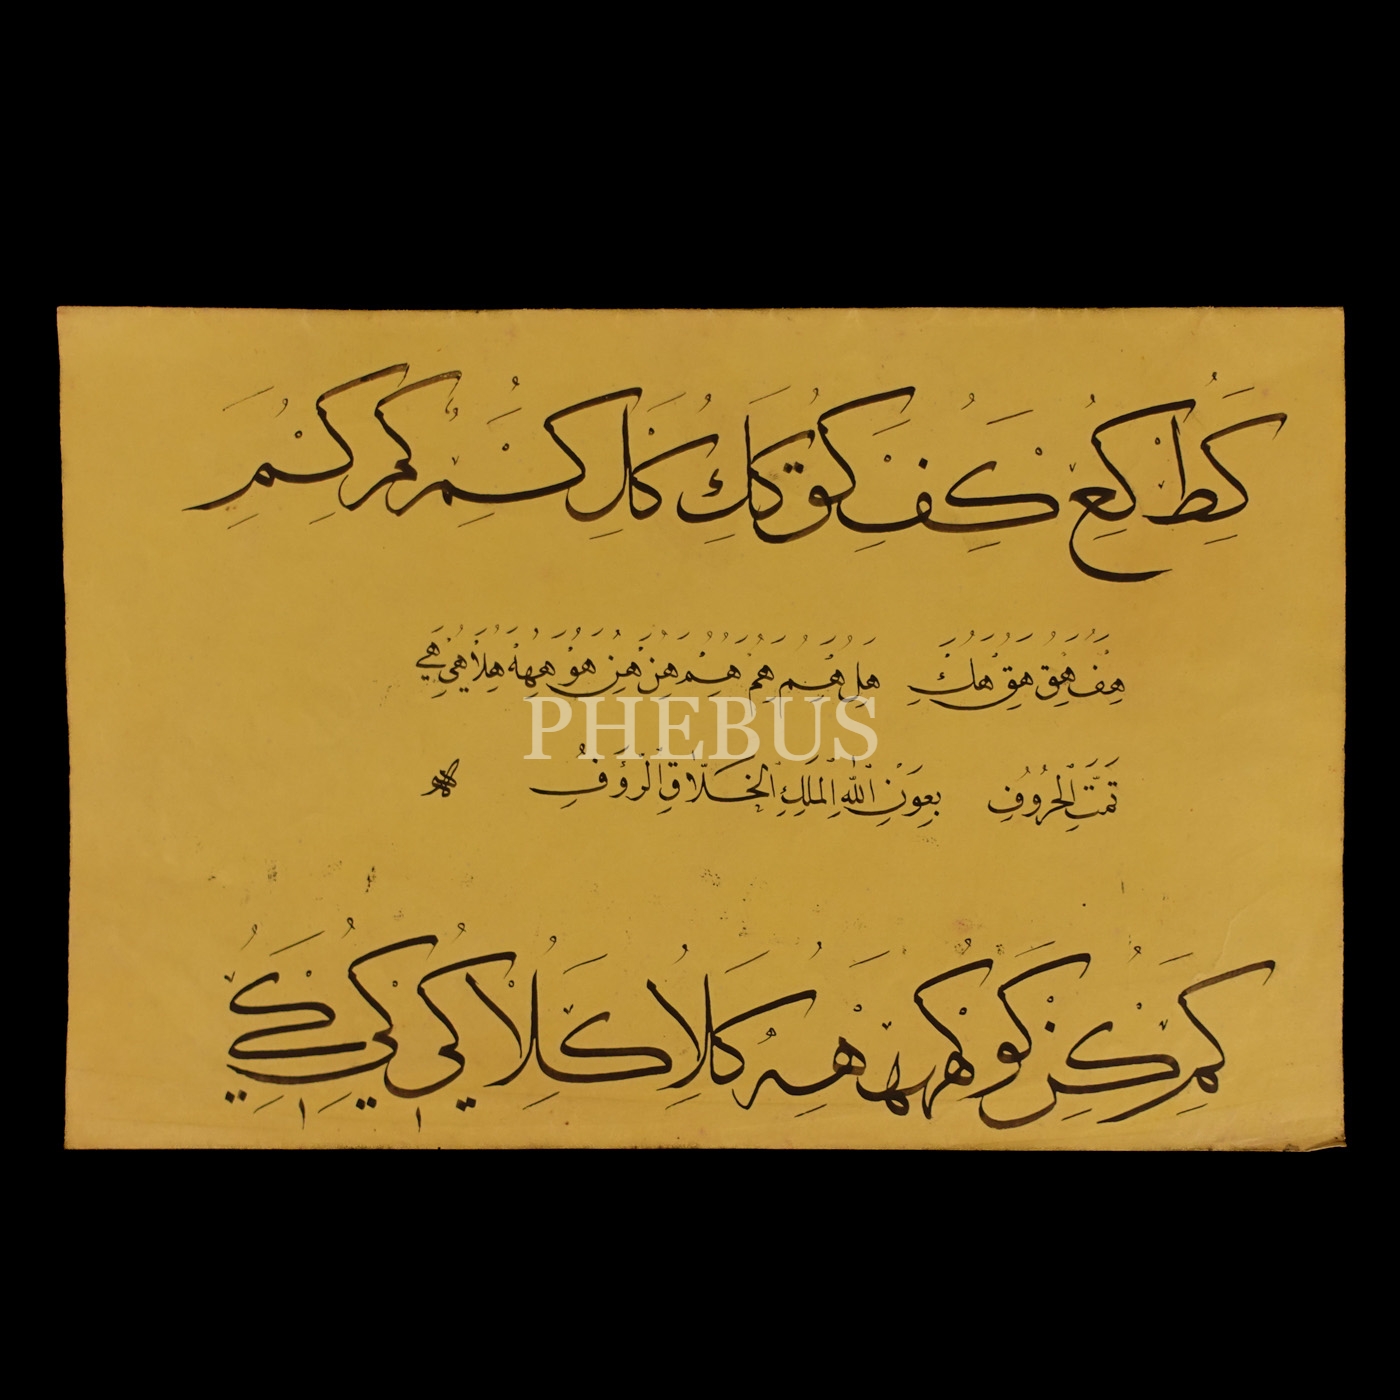 كط كع كف كق كك كل كم كم كم
هف هق هق هك هل هم هم هم هن هن هو همهه هلا هي هي
PHEBUS
تَمَّتِ الْحُرُوفِ بِعَوْنِ اللهِ الْمَلِكِ الْخَلَّاقِ الرَّؤُفِ
كم كن كو كهه هه كلا كلا كي كي كي